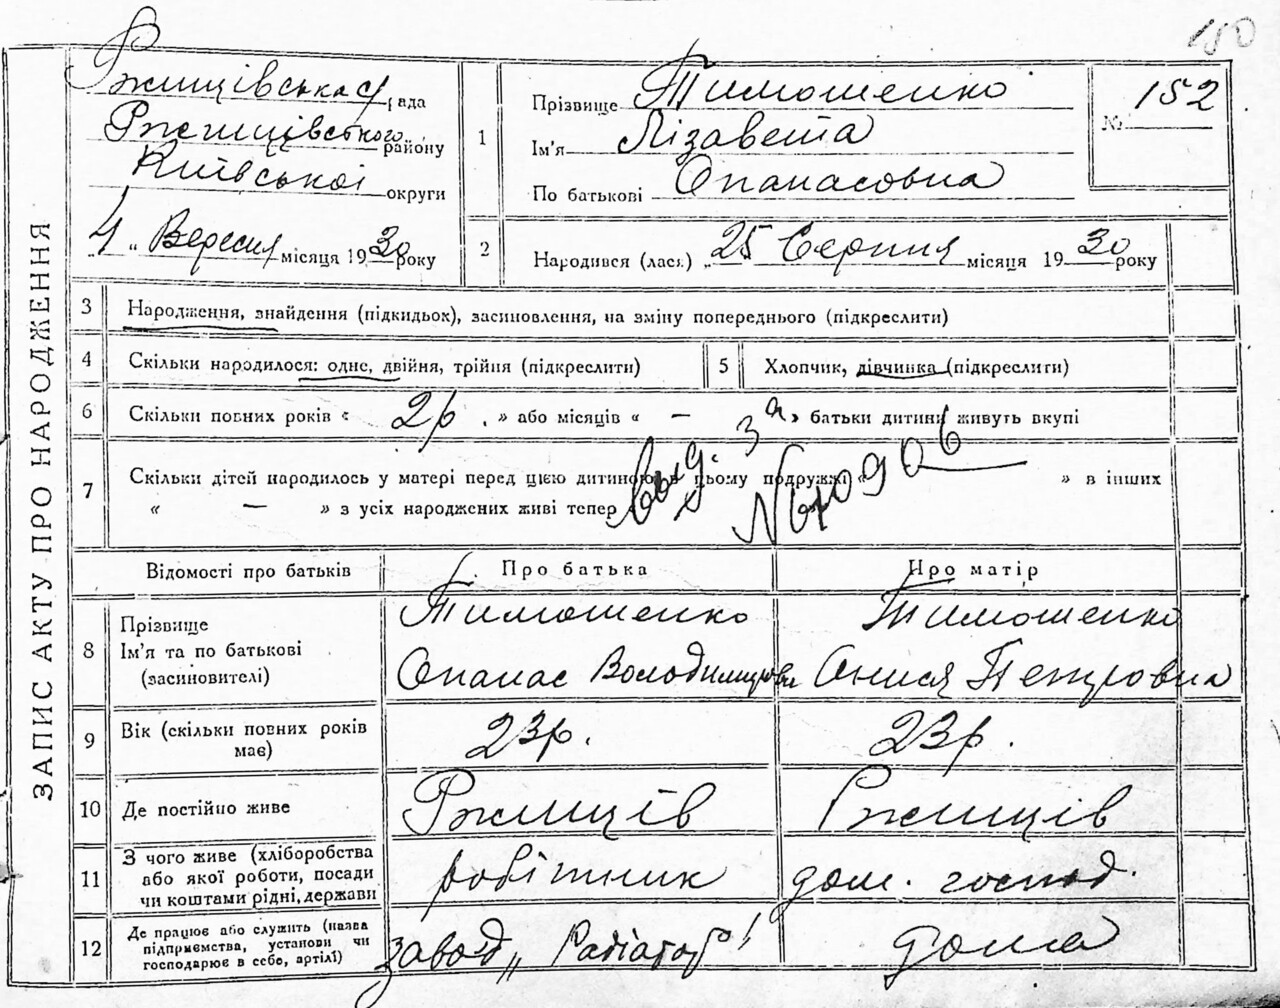 150
ЗАПИС АКТУ ПРО НАРОДЖЕННЯ
Ржищівська с/рада
Ржищівського району
Київської округи
„4“ Вересня місяця 1930 року
1
Прізвище Тимошенко
Ім'я Лізавета
По батькові Опанасовна
№ 152
2
Народився (лася) „25 Серпня місяця 1930 року
3 Народження, знайдення (підкидьок), засиновлення, на зміну попереднього (підкреслити)
4 Скільки народилося: одне, двійня, трійня (підкреслити)
5 Хлопчик, дівчинка (підкреслити)
6 Скільки повних років « 2р. » або місяців « — » батьки дитини живуть вкупі
7 Скільки дітей народилось у матері перед цією дитиною в цьому подружжі « » в інших
« — » з усіх народжених живі тепер
Відомості про батьків
Про батька
Про матір
8 Прізвище
Ім'я та по батькові
(засиновителі)
Тимошенко
Опанас
Тимошенко
Онися Петровна
9 Вік (скільки повних років
має)
23р.
23р.
10 Де постійно живе
Ржищів
Ржищів
11 З чого живе (хліборобства
або якої роботи, посади
чи коштами рідні, держави
робітник
дом. господ.
12 Де працює або служить (назва
підприємства, установи чи
господарює в себе, артілі)
завод „Радіатор"
дома